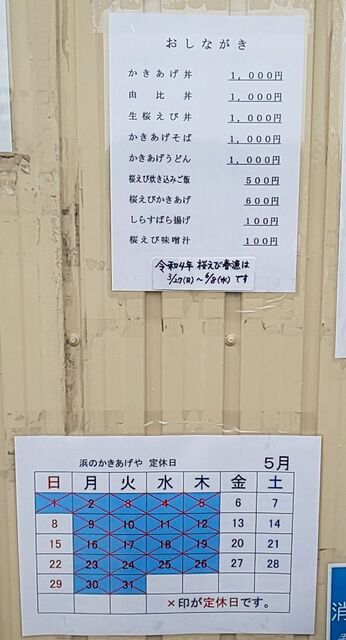 おしながき
かきあげ丼 1,000円
由比丼 1,000円
生桜えび丼 1,000円
かきあげそば 1,000円
かきあげうどん 1,000円
桜えび炊き込みご飯 500円
桜えびかきあげ 600円
しらすばら揚げ 100円
桜えび味噌汁 100円
令和4年 桜えび春漁は
3/27(日)～6/8(水)です
浜のかきあげや 定休日 5月
日 月 火 水 木 金 土
1 2 3 4 5 6 7
8 9 10 11 12 13 14
15 16 17 18 19 20 21
22 23 24 25 26 27 28
29 30 31
×印が定休日です。
消